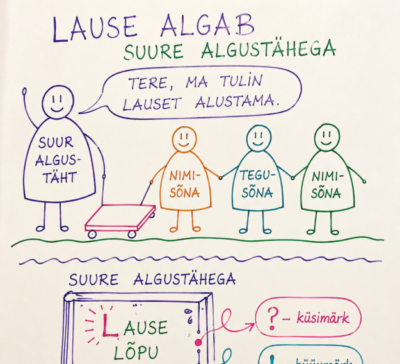 LAUSE ALGAB
SUURE ALGUSTÄHEGA
TERE, MA TULIN
LAUSET ALUSTAMA.
SUUR
ALGUS-
TÄHT
NIMI-
SÕNA
TEGU-
SÕNA
NIMI-
SÕNA
SUURE ALGUSTÄHEGA
LAUSE
LÕPU
? – küsimärk